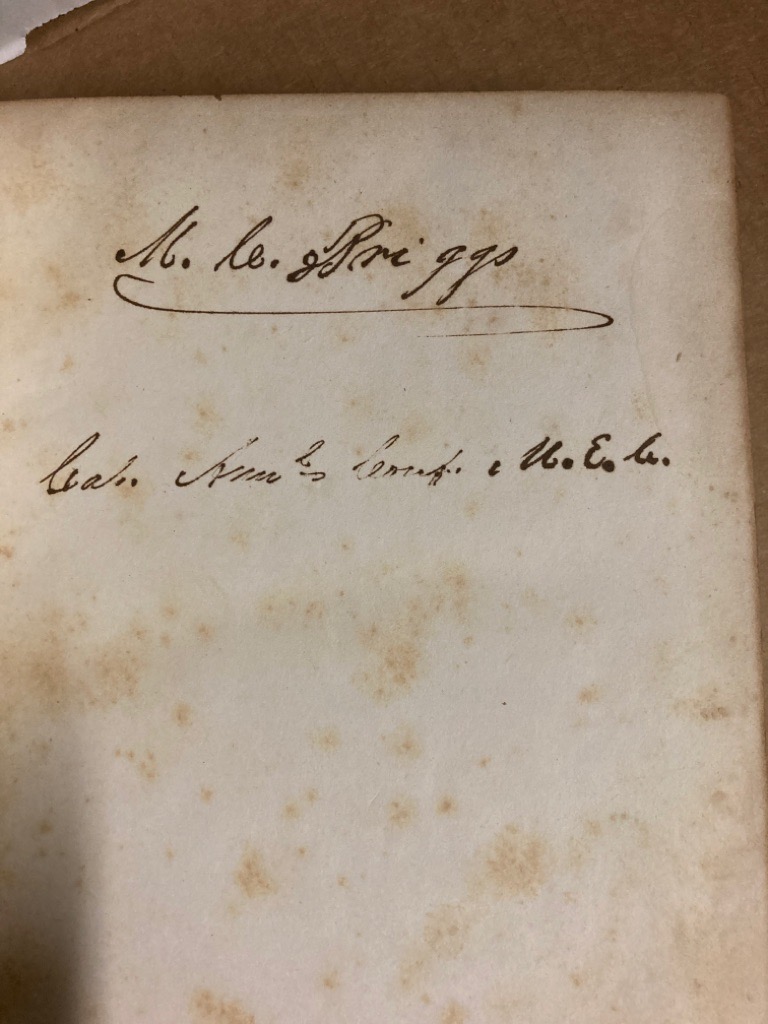 M. C. Briggs
Cal. Ann'l Conf. M. E. C.